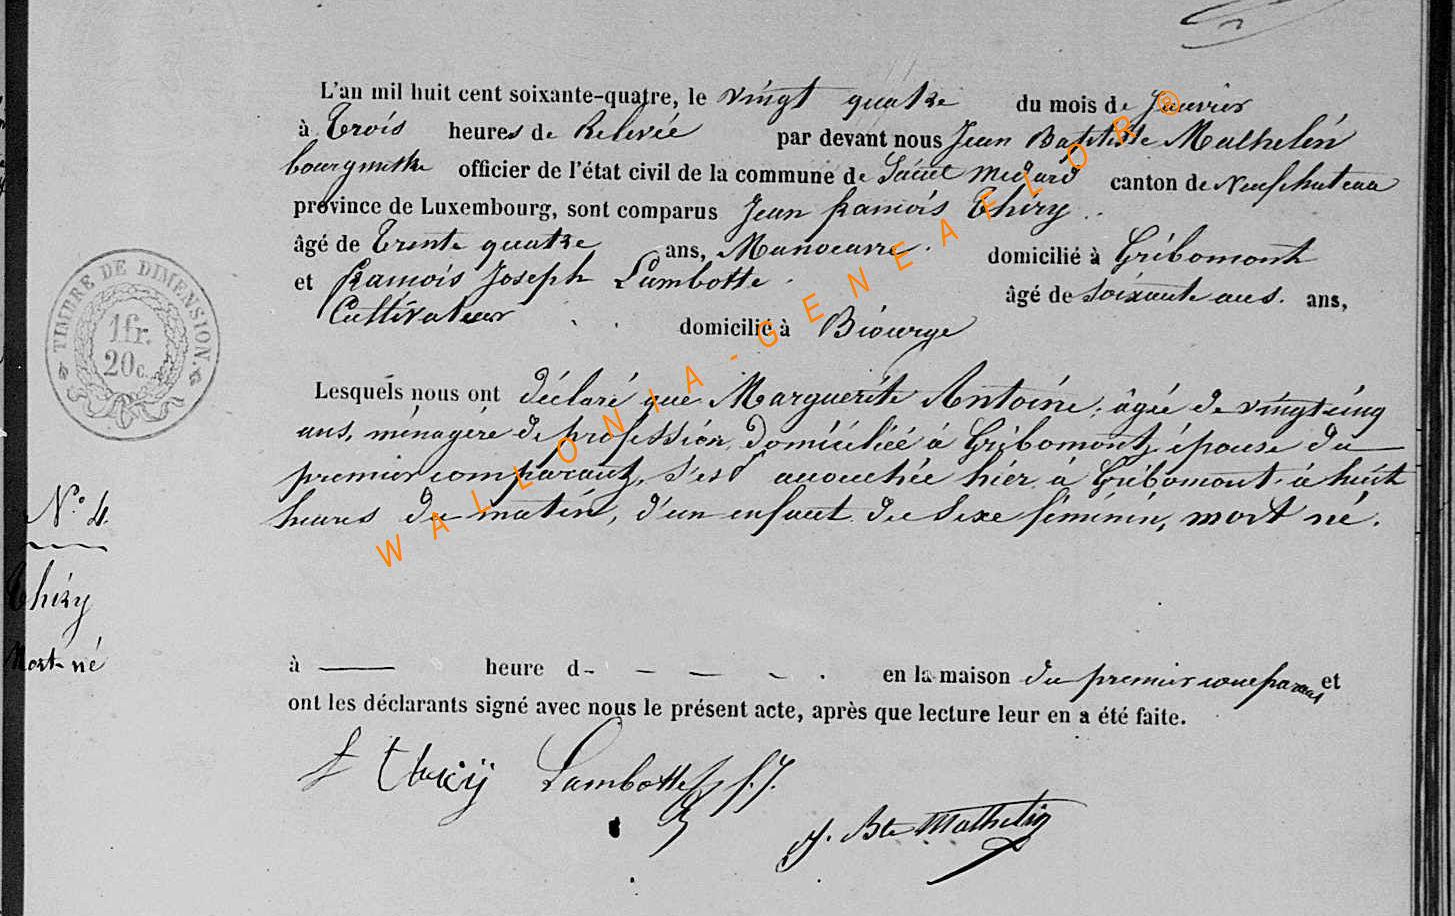 L'an mil huit cent soixante-quatre, le vingt quatre du mois de Janvier
à Trois heures de Relevée par devant nous Jean Baptiste Mathelin
bourgmtre officier de l'état civil de la commune de Saint Medard canton de Neufchateau
province de Luxembourg, sont comparus Jean francois Thiry
âgé de Trente quatre ans, Manoeuvre domicilié à Gribomont
et francois Joseph Lambotte âgé de soixante ans. ans,
Cultivateur domicilié à Biourge
TIMBRE DE DIMENSION.
1 fr.
20 c.
Lesquels nous ont déclaré que Marguerite Antoine, âgée de vingt cinq
ans, ménagére de profession, domiciliée à Gribomont, épouse du
premier comparant, s'est accouchée hier à Gribomont à huit
heures du matin, d'un enfant du sexe féminin, mort né.
N.º 4.
Thiry
Mort-né
à — heure d- - - - . en la maison du premier comparant et
ont les déclarants signé avec nous le présent acte, après que lecture leur en a été faite.
Thiry Lambotte f. J.
J. Bte Mathelin
WALLONIA-GENEALOR®